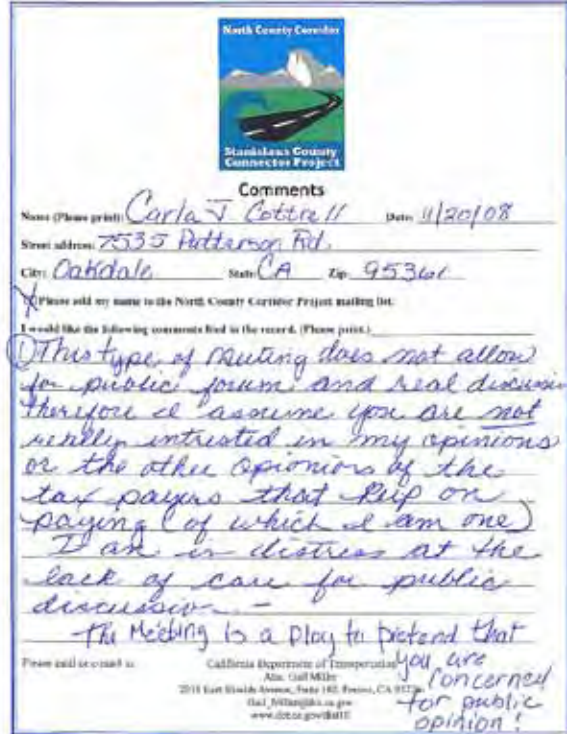 North County Corridor
Stanislaus County
Connector Project
Comments
Name (Please print): Carla J Cottrell Date: 11/20/08
Street address: 7535 Patterson Rd.
City: Oakdale State: CA Zip: 95361
X Please add my name to the North County Corridor Project mailing list.
I would like the following comments filed in the record. (Please print.)
1 This type of meeting does not allow
for public forum and real discussion
therefore I assume you are not
really intrested in my opinions
or the other opionions of the
tax payers that keep on
paying (of which I am one)
I am in distress at the
lack of care for public
discussion -
The Meeting is a Play to pretend that
you are
concerned
for public
opinion!
Please mail or e-mail to:
California Department of Transportation
Attn: Gail Miller
2015 East Shields Avenue, Suite 100, Fresno, CA